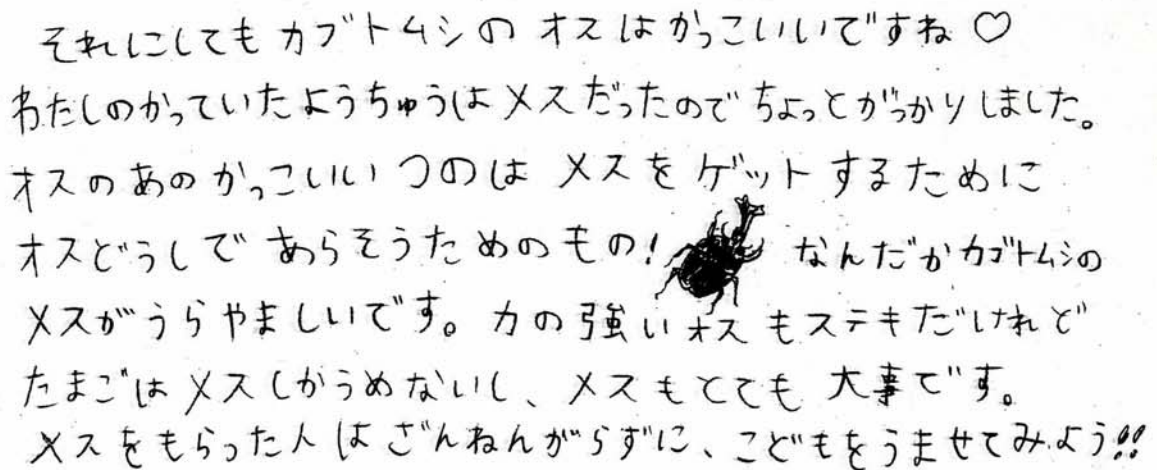 それにしてもカブトムシの オスはかっこいいですね♡
わたしのかっていたようちゅうはメスだったのでちょっとがっかりしました。
オスのあのかっこいいつのは メスをゲットするために
オスどうしであらそうためのもの! なんだかカブトムシの
メスがうらやましいです。力の強いオスもステキだけれど
たまごはメスしかうめないし、メスもとても大事です。
メスをもらった人はざんねんがらずに、こどもをうませてみよう!!